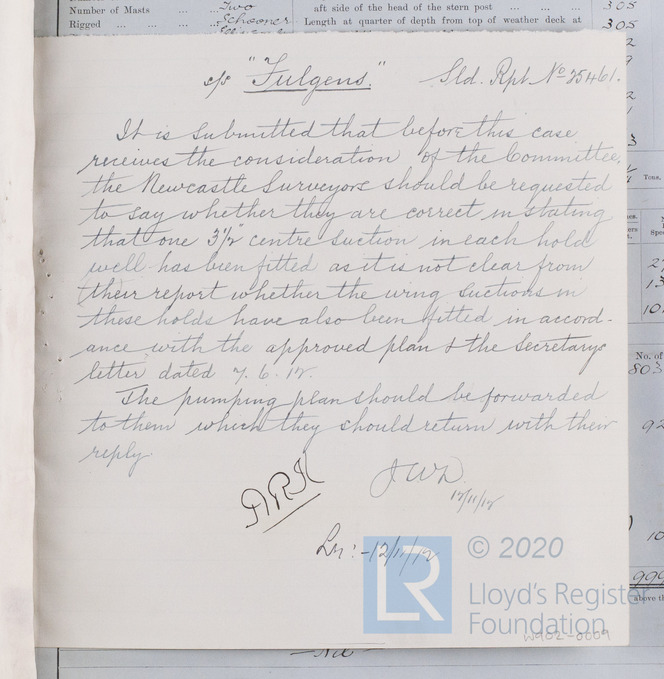 Number of Masts ... ... ... Two
Rigged ... ... ... Schooner
aft side of the head of the stern post ... ... ... 305
Length at quarter of depth from top of weather deck at
305
s/s "Fulgens." Sld. Rpt. No 25461.
It is submitted that before this case
receives the consideration of the Committee,
the Newcastle Surveyors should be requested
to say whether they are correct in stating
that one 3½" centre suction in each hold
well has been fitted as it is not clear from
their report whether the wing suctions in
these holds have also been fitted in accord-
ance with the approved plan & the Secretary's
letter dated 7.6.12.
The pumping plan should be forwarded
to them which they should return with their
reply.
JWD.
12/11/12
Lr:-12/11/12
Tons.
No. of
803
92
10
999
above th
Nil
© 2020
LR
Lloyd's Register
Foundation
W902-0009